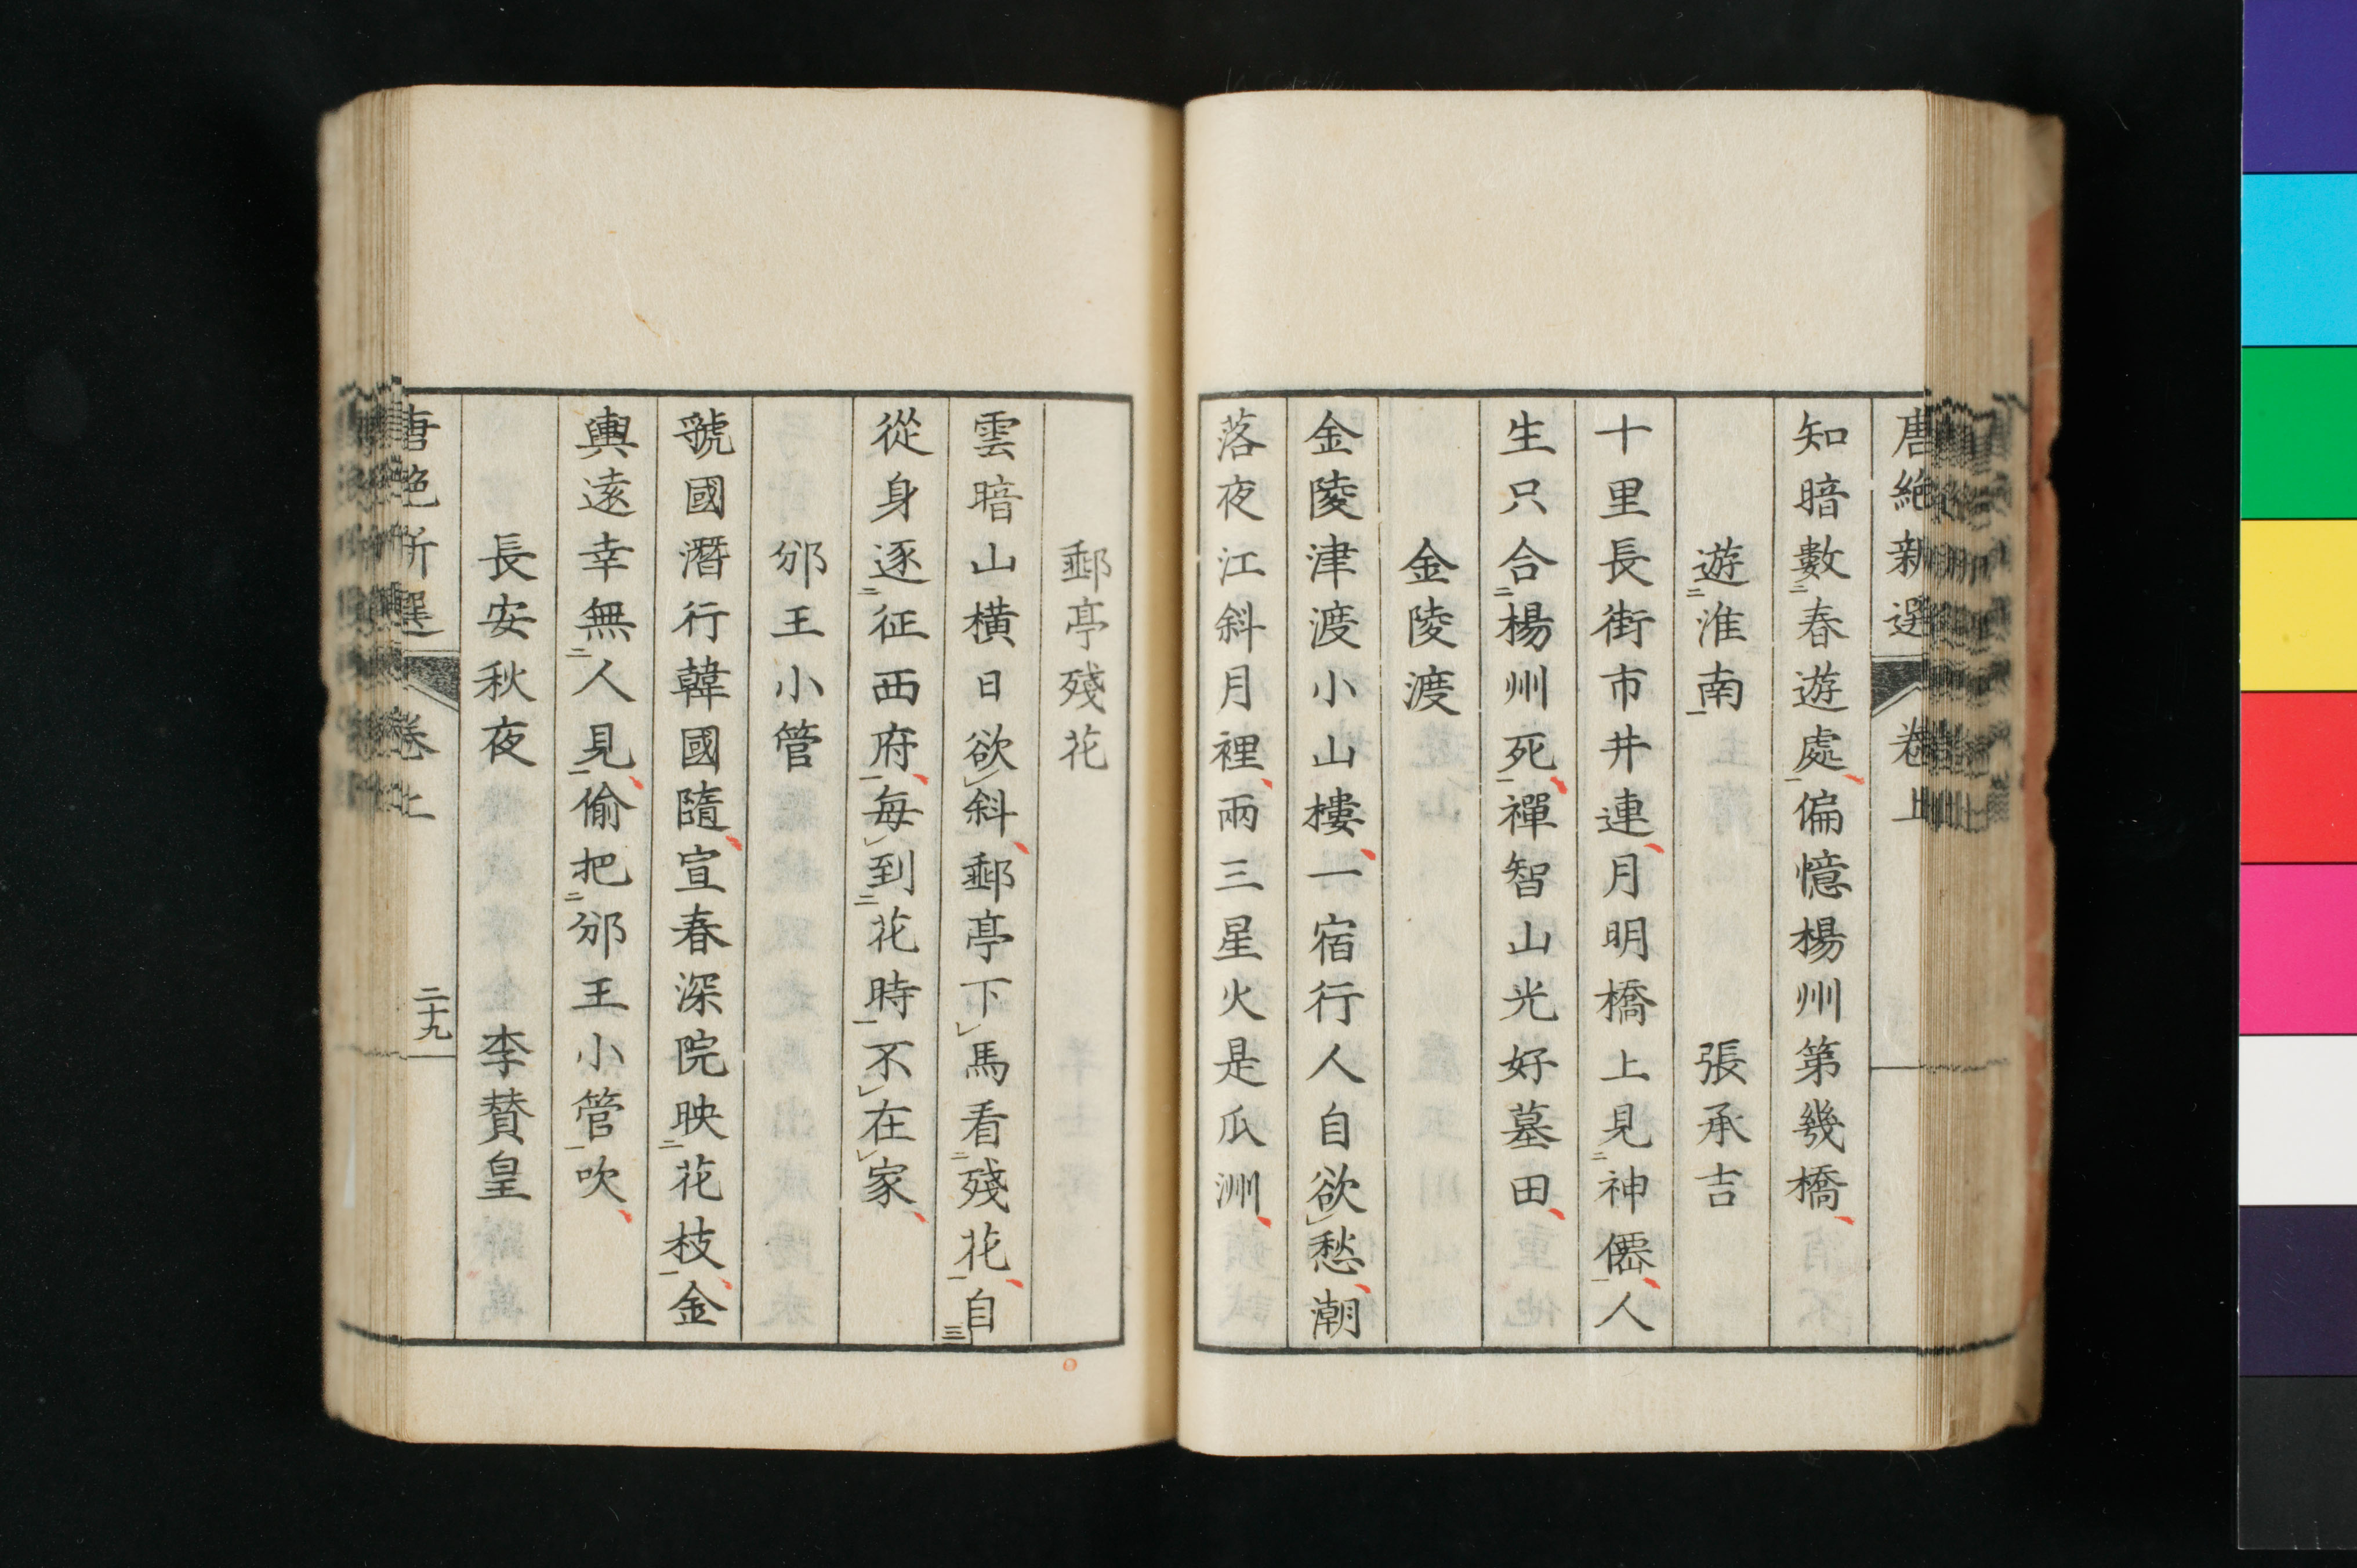 唐絶新選 卷上
知暗數二春遊處一偏憶楊州第幾橋
遊二淮南一 張承吉
十里長街市井連月明橋上見二神僊一人
生只合二楊州死一禪智山光好墓田
金陵渡
金陵津渡小山樓一宿行人自欲レ愁潮
落夜江斜月裡兩三星火是瓜洲
郵亭殘花
雲暗山橫日欲レ斜郵亭下レ馬看二殘花一自三
從身逐二征西府一每レ到二花時一不レ在レ家
邠王小管
虢國潛行韓國隨宣春深院映二花枝一金
輿遠幸無二人見一偷把二邠王小管一吹
長安秋夜 李贊皇
唐絶新選 卷上 二十九